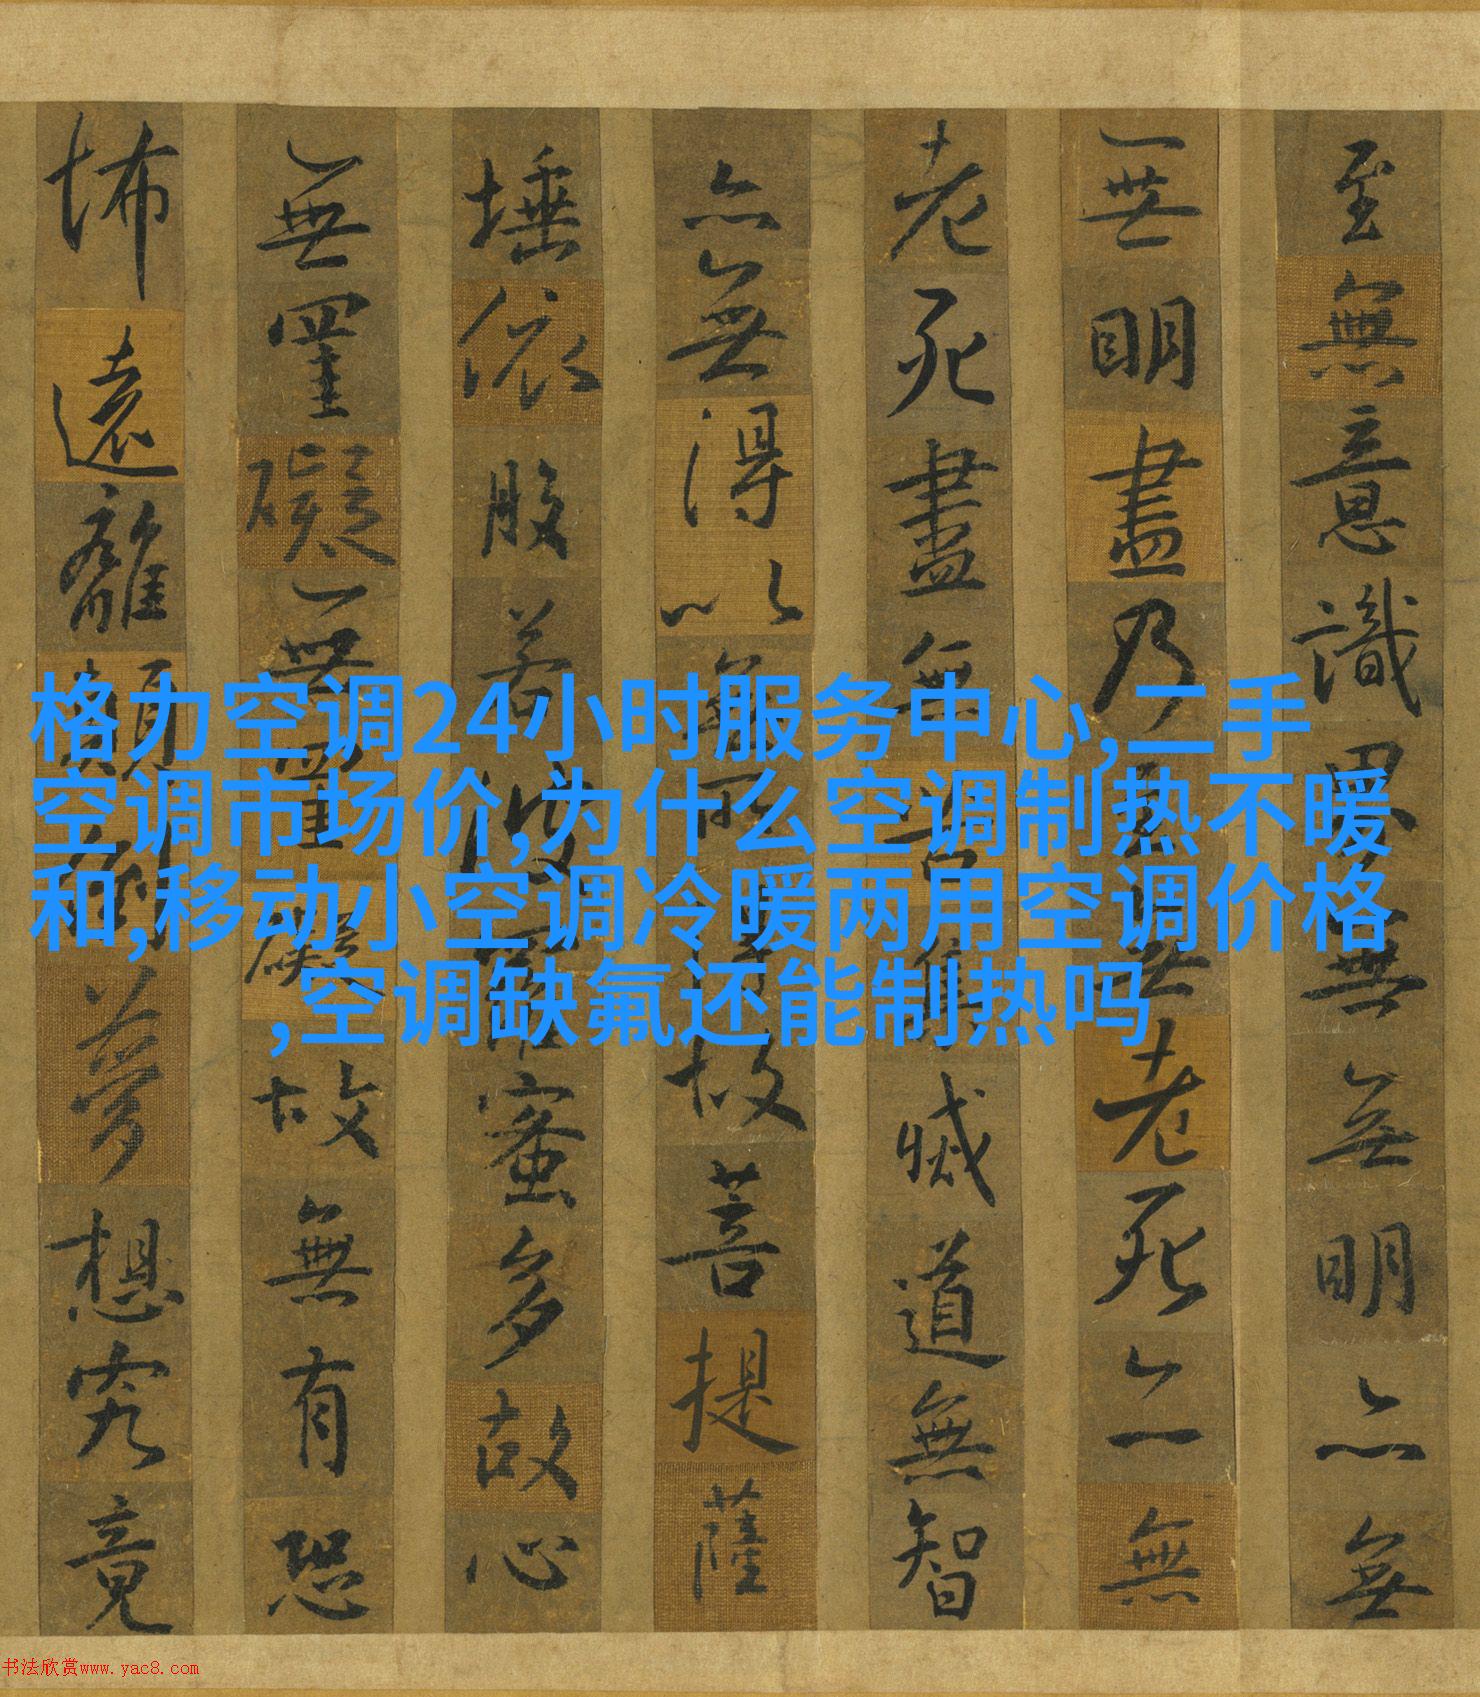 至無意識界無無明亦無
無明盡乃至無老死亦無
老死盡無苦集滅道無智
亦無得以無所得故菩提薩
埵依般若波羅蜜多故心
無罣礙無罣礙故無有恐
怖遠離顛倒夢想究竟
格力空调24小时服务中心,二手
空调市场价,为什么空调制热不暖
和,移动小空调冷暖两用空调价格
,空调缺氟还能制热吗
书法欣赏www.yac8.com